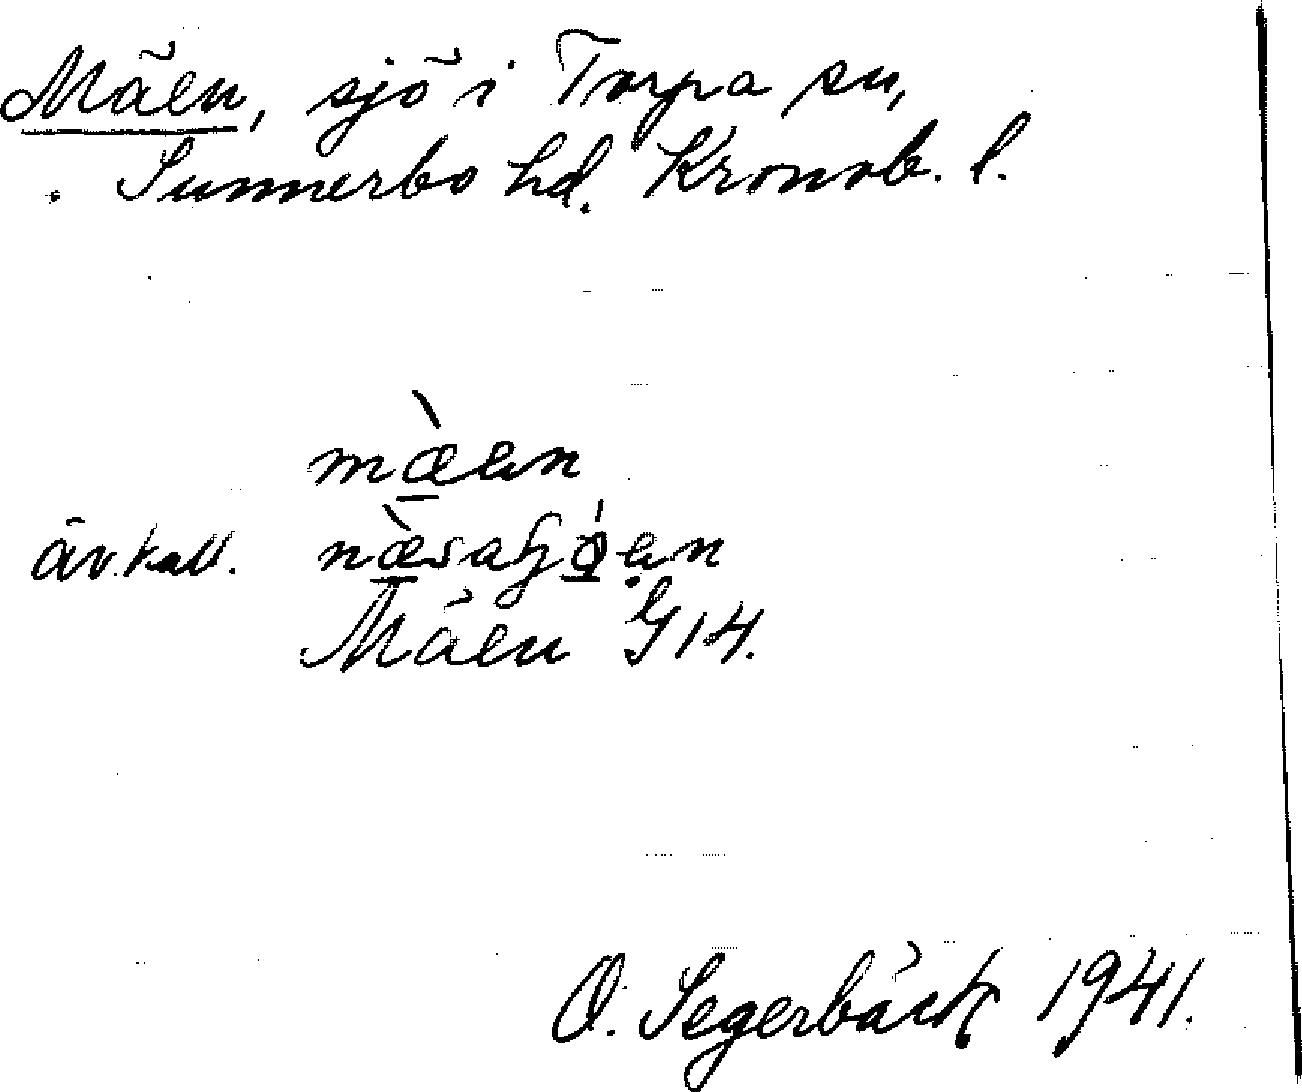 Mäen, sjö i Torpa sn,
Sunnerbo hd. Kronob. l.
mæ̀en
äv. kall.
Mäen G 14.
O. Segerbäck 1941.